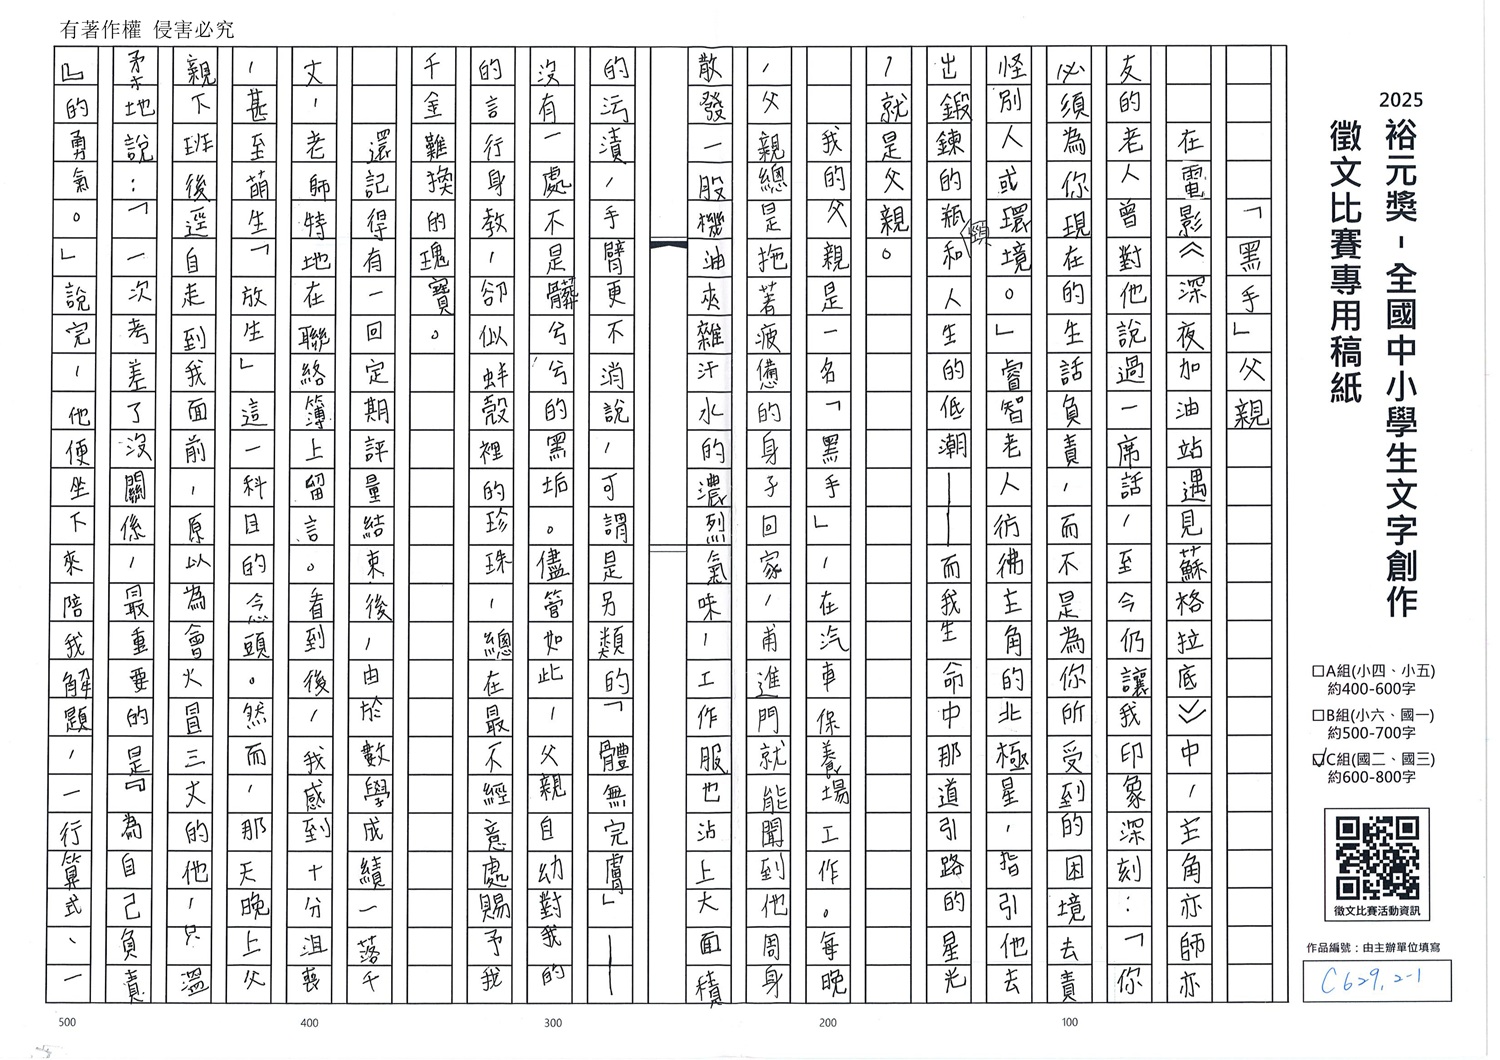 有著作權 侵害必究
2025
裕元獎-全國中小學生文字創作
徵文比賽專用稿紙
□A組(小四、小五)
約400-600字
□B組(小六、國一)
約500-700字
☑C組(國二、國三)
約600-800字
徵文比賽活動資訊
作品編號：由主辦單位填寫
C629,2-1
「黑手」父親
在電影《深夜加油站遇見蘇格拉底》中，主角亦師亦
友的老人曾對他說過一席話，至今仍讓我印象深刻：「你
必須為你現在的生話負責，而不是為你所受到的困境去責
怪別人或環境。」睿智老人，彷彿主角的北極星，指引他去
出鍛鍊的瓶頸和人生的低潮——而我生命中那道引路的星光
，就是父親。
我的父親是一名「黑手」，在汽車保養場工作。每晚
，父親總是拖著疲憊的身子回家，甫進門就能聞到他周身
散發一股機油夾雜汗水的濃烈氣味，工作服也沾上大面積
的污漬，手臂更不消說，可謂是另類的「體無完膚」——
沒有一處不是髒兮兮的黑垢。儘管如此，父親自幼對我的
的言行身教，卻似蚌殼裡的珍珠，總在最不經意處賜予我
千金難換的瑰寶。
還記得有一回定期評量結束後，由於數學成績一落千
丈，老師特地在聯絡簿上留言。看到後，我感到十分沮喪
，甚至萌生「放生」這一科目的念頭。然而，那天晚上父
親下班後逕自走到我面前，原以為會火冒三丈的他，只溫
柔地說：「一次考差了沒關係，最重要的是『為自己負責
』的勇氣。」說完，他便坐下來陪我解題，一行算式、一
100
200
300
400
500